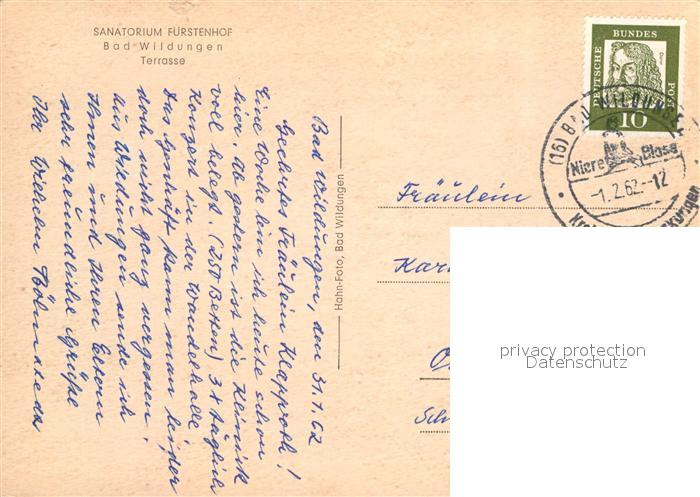 SANATORIUM FÜRSTENHOF
Bad Wildungen
Terrasse
Bad Wildungen, den 31.1.62
Geehrtes Fräulein Klapproth!
Eine Woche bin ich heute schon
hier. Ab gestern ist die Klinik
voll belegt. (250 Betten) 3x täglich
Konzert in der Wandelhalle.
Das Geschäft kann man leider
doch nicht ganz vergessen.
Aus Wildungen sende ich
Ihnen und Ihren Eltern
sehr freundliche Grüße
Ihr Wilhelm
Hahn-Foto, Bad Wildungen
DEUTSCHE BUNDES POST
Dürer
10
(16) BAD WILDUNGEN
Niere Blase
-1.2.62.-12
Fräulein
Kar
Sch
privacy protection
Datenschutz